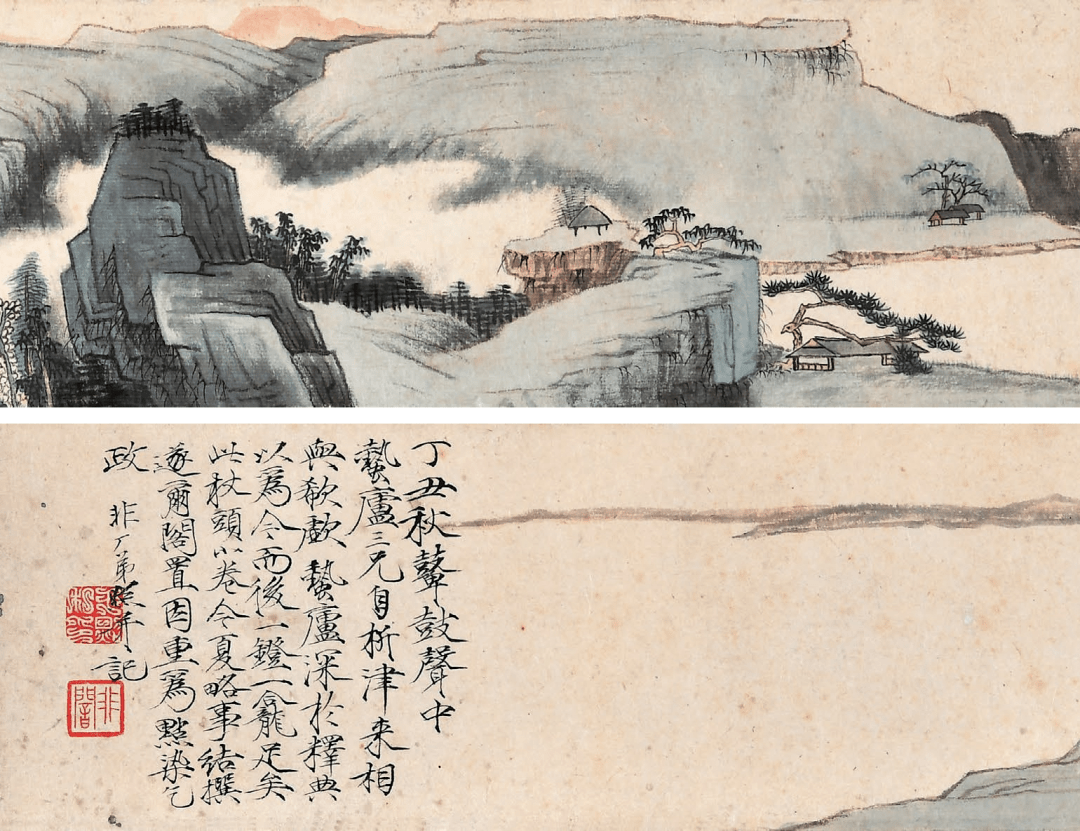 丁丑秋鼙鼓聲中
蟄廬三兄自析津來相
與欷歔蟄廬深於釋典
以爲今而後一鐙一龕足矣
此杖頭小卷今夏略事結撰
遂爾閣置因重爲點染乞
政 非厂弟照并記
非闇